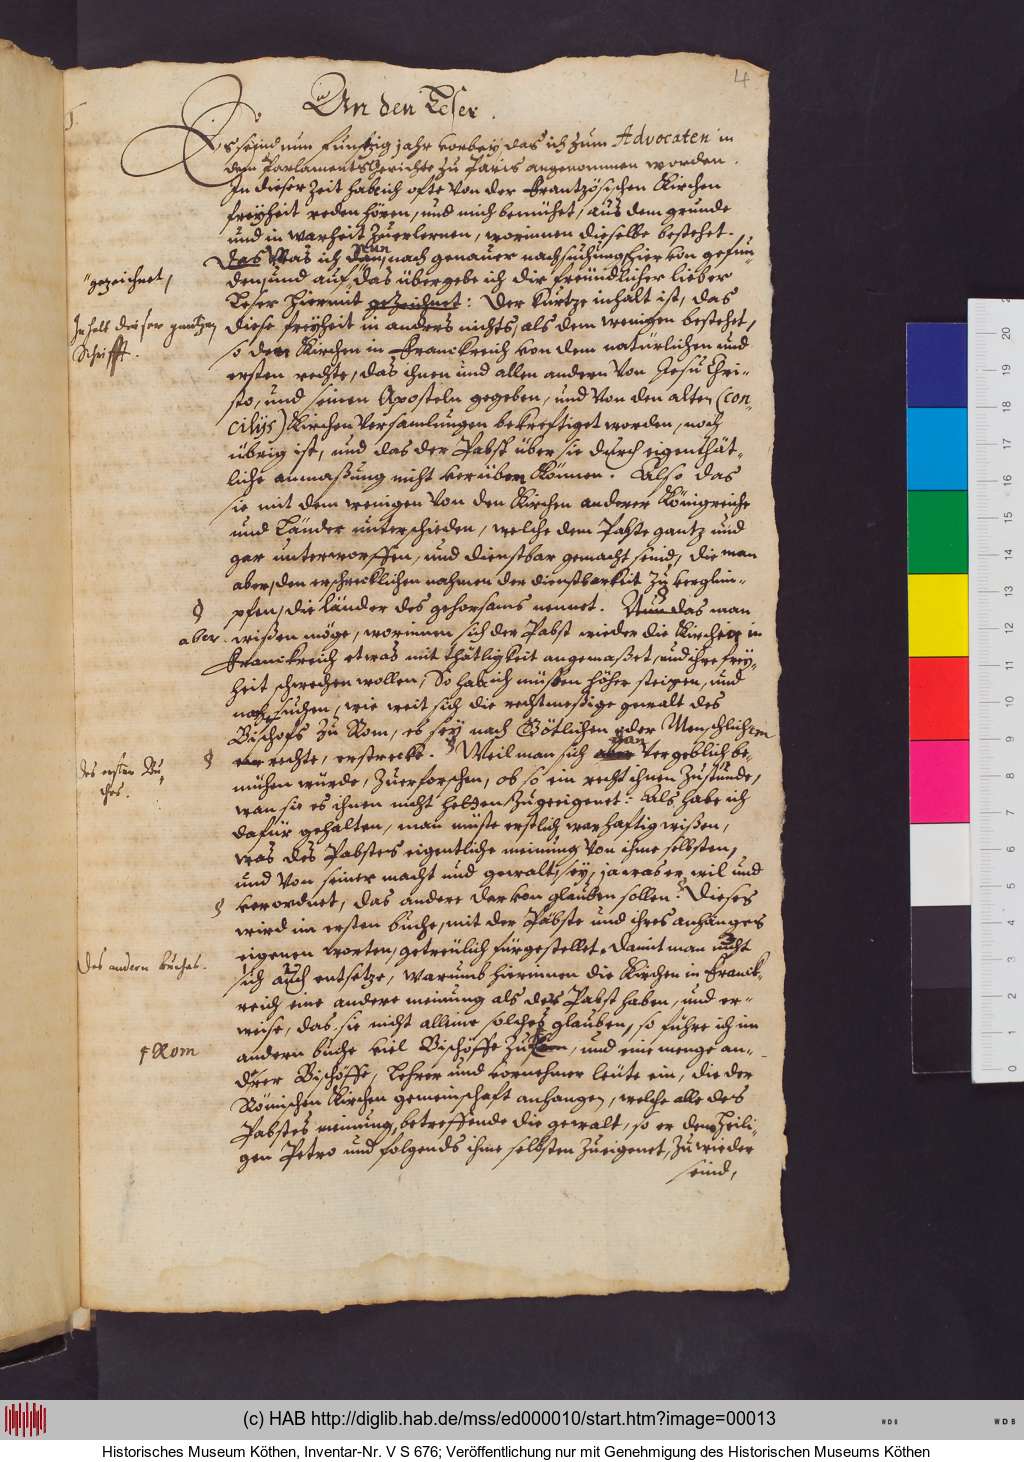 4
An den Leser.
Es seind nun fünftzig jahr vorbey, das ich zum Advocaten in
dem Parlaments Gerichte zu Paris angenommen worden.
In dieser Zeit hab ich ofte von der Frantzösischen Kirchen
freyheit reden hören, und mich bemühet, aus dem grunde
und in warheit zu erlernen, worinnen dieselbe bestehet.
Das Was ich dan, nun nach genauer nachsuchung hiervon gefun-
den, und auf das übergebe ich dir freundlicher lieber
"gezeichnet,
Leser hiermit gezeichnet: Der kurtze inhalt ist, das
Inhalt dieser gantzen
Schrifft.
diese freyheit in anders nichts, als dem wenigen bestehet,
so den Kirchen in Franckreich von dem natürlichen und
ersten rechte, das ihnen und allen andern von Jesu Chri-
sto, und seinen Aposteln gegeben, und von den alten (Con-
cilijs) Kirchen Versamlungen bekreftiget worden, noch
übrig ist, und das der Pabst über sie durch eigenthät-
liche anmaßung nicht verüben können. Also das
sie mit dem wenigen von den Kirchen anderer Königreiche
und Länder unterschieden, welche dem Pabste gantz und
gar unterworffen, und dienstbar gemacht seind, die man
aber, den erschrecklichen nahmen der dienstbarkeit zu verglim-
pfen, die länder des gehorsams nennet. Nun das man
aber. wißen möge, worinnen sich der Pabst wieder die Kirchen in
Franckreich etwas mit thätligkeit angemaßet, und ihre frey-
heit schwechen wollen, So hab ich müßen höher steigen, und
nachsuchen, wie weit sich die rechtmeßige gewalt des
Bischofs zu Rom, es sey nach Götlichem oder Menschlichem
rechte, erstrecke. Weil man sich aber vergeblich be-
des ersten Bu-
ches.
mühen würde, zuerforschen, ob so ein recht ihnen zustünde,
wan sie es ihnen nicht hetten zugeeignet: Als habe ich
dafür gehalten, man müste erstlich warhaftig wißen,
was des Pabstes eigentliche meinung von ihme selbsten,
und von seiner macht und gewalt, sey, ja was er wil und
verordnet, das andere darvon glauben sollen. Dieses
wird im ersten buche, mit der Päbste und ihres anhanges
eigenen worten, getreulich fürgestellet. Damit man nicht
des andern buches.
sich auch entsetze, warumb hierinnen die Kirchen in Franck-
reich eine andere meinung als der Pabst haben, und er-
weise, das sie nicht alleine solches glauben, so führe ich im
Rom
andern buche viel Bischöffe zu, und eine menge an-
derer Bischöffe, Lehrer und vornehmer leute ein, die der
Römischen Kirchen gemeinschaft anhangen, welche alle des
Pabstes meinung, betreffende die gewalt, so er dem Heili-
gen Petro und folgends ihme selbsten zueigenet, zuwieder
seind,
(c) HAB http://diglib.hab.de/mss/ed000010/start.htm?image=00013
Historisches Museum Köthen, Inventar-Nr. V S 676; Veröffentlichung nur mit Genehmigung des Historischen Museums Köthen